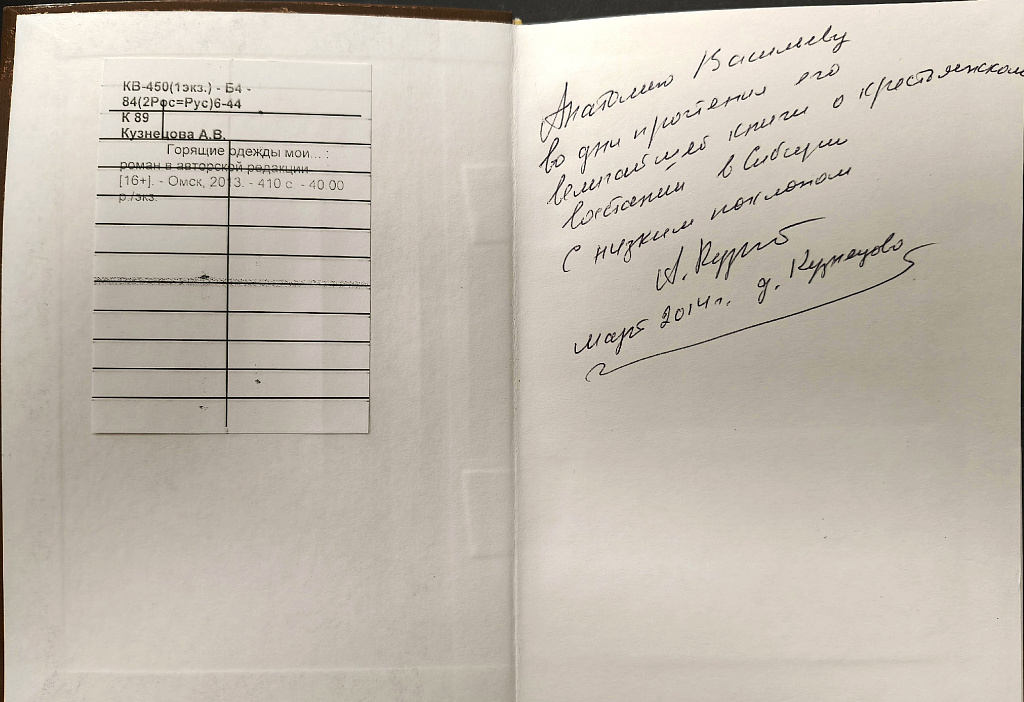 КВ-450(1экз.) - Б4 -
84(2Рос=Рус)6-44
К 89
Кузнецова А.В.
Горящие одежды мои... :
роман в авторской редакции
[16+]. - Омск, 2013. - 410 с. - 40.00
р./экз.
Анатолию Васильеву
во дни прочтения его
величайшей книги о крестьянском
восстании в Сибири
с низким поклоном
март 2014г. д. Кузнецово